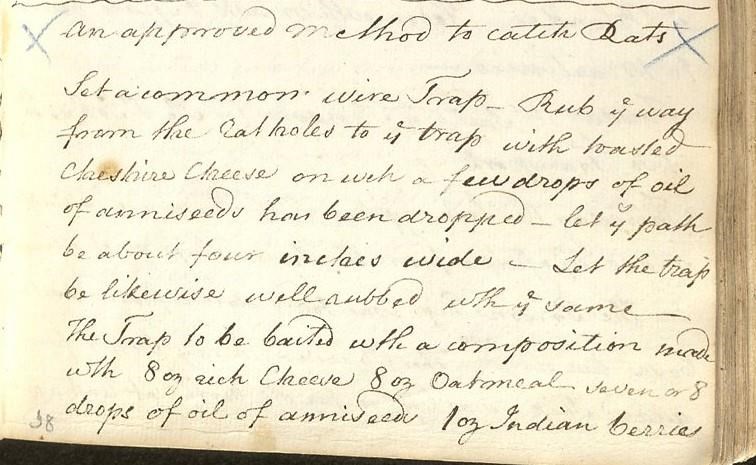 An approved Method to catch Rats
Set a common wire Trap - Rub ye way
from the Ratholes to ye trap with toasted
Cheshire Cheese on wch a few drops of oil
of anniseeds has been dropped - let ye path
be about four inches wide - Let the trap
be likewise well rubbed wth ye same
The Trap to be baited wth a composition made
wth 8 oz rich Cheese 8 oz Oatmeal seven or 8
drops of oil of anniseeds 1 oz Indian berries
38